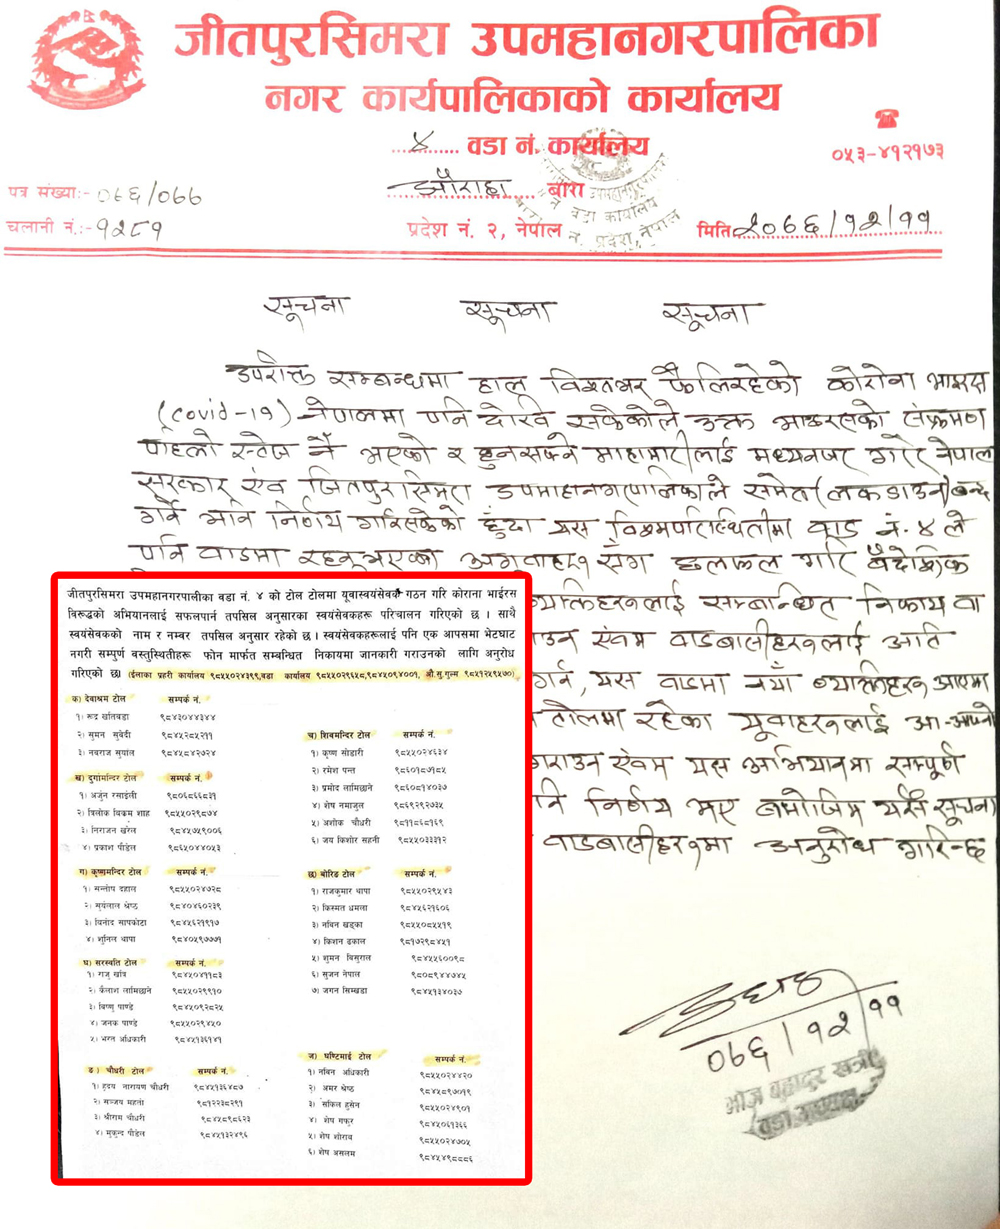 जीतपुरसिमरा उपमहानगरपालिका
नगर कार्यपालिकाको कार्यालय
४ वडा नं. कार्यालय
०५३-४१२१७३
पत्र संख्या:- ०७६/०७७
औराहा बारा
चलानी नं.:- १२८१
प्रदेश नं. २, नेपाल
मिति २०७६/१२/११
सूचना सूचना सूचना
उपरोक्त सम्बन्धमा हाल विश्वभर फैलिरहेको कोरोना भाइरस
(covid-19) नेपालमा पनि देखि सकेकोले उक्त भाइरसको संक्रमण
पहिलो स्तेज नै भएको र हुनसक्ने माहामारीलाई मध्यनजर गरि नेपाल
सरकार एंव जितपुरसिमरा उपमाहानगरपालिकाले समेत (लकडाउन) बन्द
गर्ने भनि निर्णय गरिसकेको हुंदा यस विश्वमपरिस्थितीमा वाड नं. ४ ले
पनि वाडमा रहनुभएका अगुवाहरु सँग छलफल गरि बैदेशिक
व्यक्तिहरुलाई सम्बान्धित निकाय वा
एंवम वाडबासीहरुलाई अति
गर्न, यस वाडमा नयाँ व्यक्तिहरु आएमा
तोलमा रहेका यूवाहरुलाई आ-आफ्नो
गराउन एंवम यस अभियानमा सम्पूर्ण
निर्णय भए बमोजिम यसै सूचना
वाडबासीहरुमा अनुरोध गरिन्छ
जीतपुरसिमरा उपमहानगरपालीका वडा नं. ४ को टोल टोलमा यूवास्वयंसेवक गठन गरि कोराना भाईरस
विरूद्धको अभियानलाई सफलपार्न तपसिल अनुसारका स्वयंसेवकहरू परिचालन गरिएको छ । साथै
स्वयंसेवकको नाम र नम्बर तपसिल अनुसार रहेको छ । स्वयंसेवकहरूलाई पनि एक आपसमा भेटघाट
नगरी सम्पुर्ण वस्तुस्थितीहरू फोन मार्फत सम्बन्धित निकायमा जानकारी गराउनको लागि अनुरोध
गरिएको छ। (ईलाका प्रहरी कार्यालय ९८५५०२४३९९,वडा कार्यालय ९८५५०२९६५८,९८४५०९४००१, औ.सु.गुल्म ९८५१२५९५७०)
क) देवाश्रम टोल सम्पर्क नं.
१) रूद्र खतिवडा ९८४३०४४३४४
२) सुमन सुवेदी ९८४५२८५२११
३) नवराज सुयाल ९८४५८४२७२४
ख) दुर्गामन्दिर टोल सम्पर्क नं.
१) अर्जुन रसाईली ९८०६८६६८३१
२) त्रिलोक बिक्रम शाह ९८५५०२९८७४
३) निराजन खरेल ९८४५७५९००६
४) प्रकाश पौडेल ९८६५०४४०५३
ग) कृष्णमन्दिर टोल सम्पर्क नं.
१) सन्तोष दहाल ९८५५०२४७२८
२) सुर्यलाल श्रेष्ठ ९८४०४६०२३९
३) बिनोद सापकोटा ९८४५६२१९१७
४) शुनिल थापा ९८४०५९७७७१
घ) सरस्वति टोल सम्पर्क नं.
१) राजु खत्रि ९८४५०४११८३
२) कैलाश लामिछाने ९८५५०२९९१०
३) बिष्णु पाण्डे ९८४५०९२८२५
४) जनक पाण्डे ९८५५०२९४५०
५) भरत अधिकारी ९८४५१३६१४१
ङ) चौधरी टोल सम्पर्क नं.
१) हृदय नारायण चौधरी ९८४५१३६४८७
२) सञ्जय महतो ९८१२२३८२९१
३) श्रीराम चौधरी ९८४५८९८६२३
४) मुकुन्द पौडेल ९८४५१३२४९६
च) शिवमन्दिर टोल सम्पर्क नं.
१) कृष्ण सोडारी ९८५५०२४६३४
२) रमेश पन्त ९८६०१८७१८५
३) प्रमोद लामिछाने ९८६०८१४०३७
४) शेष नमाजुल ९८६९२९२७३५
५) अशोक चौधरी ९८११८६८१६९
६) जय किशोर सहनी ९८५५०३३३१२
छ) बोरिङ टोल सम्पर्क नं.
१) राजकुमार थापा ९८५५०२९५४३
२) किस्मत धमला ९८४५६२१६०६
३) नबिन खड्का ९८५५०८५५१९
४) किशन ढकाल ९८१७२९८४५१
५) शुमन बिसुराल ९८४५५६००९८
६) सुजन नेपाल ९८०८९४४७४५
७) जगन सिम्खडा ९८४५१३४०३७
ज) घण्टिमाई टोल सम्पर्क नं.
१) नबिन अधिकारी ९८५५०२४४२०
२) अमर श्रेष्ठ ९८४५८९७०१९
३) सकिल हुसेन ९८५५०२४९०१
४) शेष गफुर ९८४५०६१३६६
५) शेष शोराब ९८५५०२४७०५
६) शेष असलम ९८४५४९८८८६
०७६/१२/११
भोज बहादुर खत्री
वडा अध्यक्ष